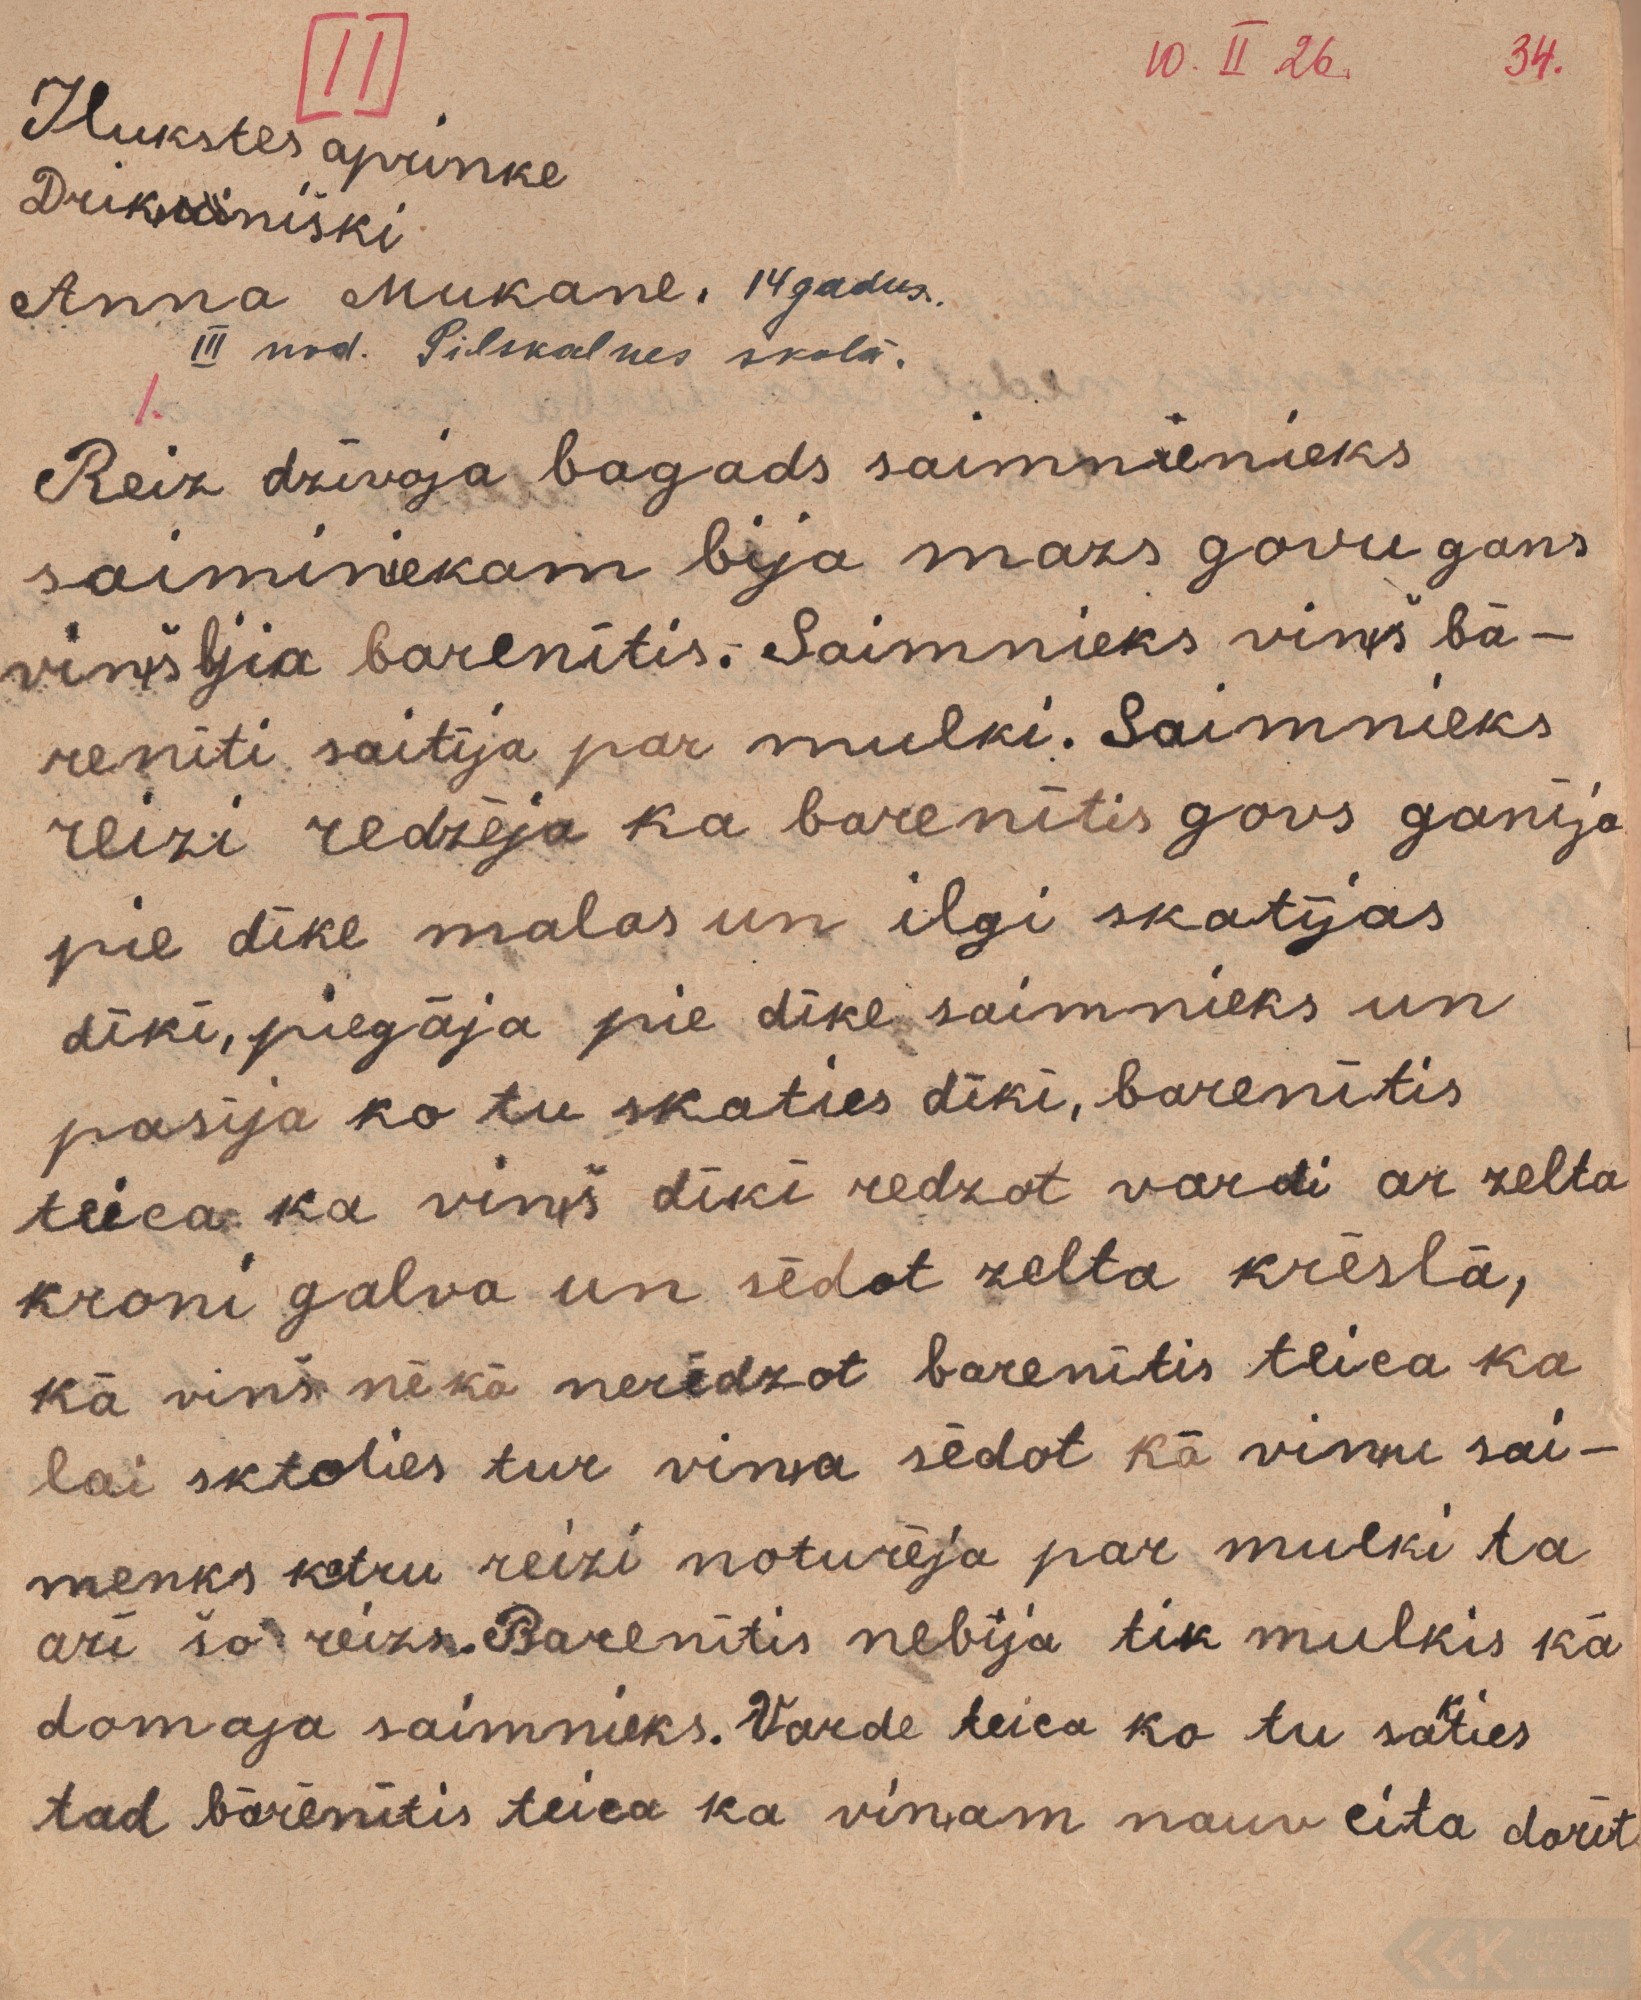 11
10. II 26. 34.
Ilukstes aprinke
Anna Mukane. 14 gadus.
III nod. Pilskalnes skolā.
1.
Reiz dzīvoja bagads saimnienieks
saiminiekam bija mazs govu gans
viņš bjia barenītis. Saimnieks viņš bā-
renīti saitīja par mulki. Saimnieks
reizi redzēja ka barenītis govs ganīja
pie dīķe malas un ilgi skatījas
dīķī, piegāja pie dīķe saimnieks un
pasīja ko tu skaties dīķī, barenītis
teica ka viņš dīķī redzot vardi ar zelta
kroni galva un sēdot zelta krēslā,
kā vinš nēkā neredzot barenītis teica ka
lai sktolies tur viņa sēdot kā viņu sai-
menks katru reizi noturēja par mulki ta
arī šo reizs. Barenītis nebija tik mulkis kā
domaja saimnieks. Varde teica ko tu skaties
tad bārēnītis teica ka viņam nauv cita darīt